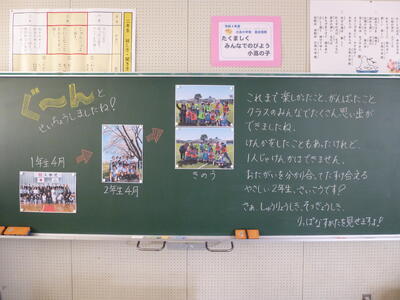 たくましく
みんなでのびよう
小高の子
ぐ〜んと
せいちょうしましたね!
1年生4月
2年生4月
きのう
これまで楽しかったこと、がんばったこと
クラスのみんなでたくさん思い出が
できましたね。
けんかをしたこともあったけれど、
1人じゃけんかはできません。
おたがいを分かり合い、たすけ合える
やさしい2年生、さいこうです!
さぁ、しゅうりょうしき、そつぎょうしき、
りっぱなすがたを見せますよ!